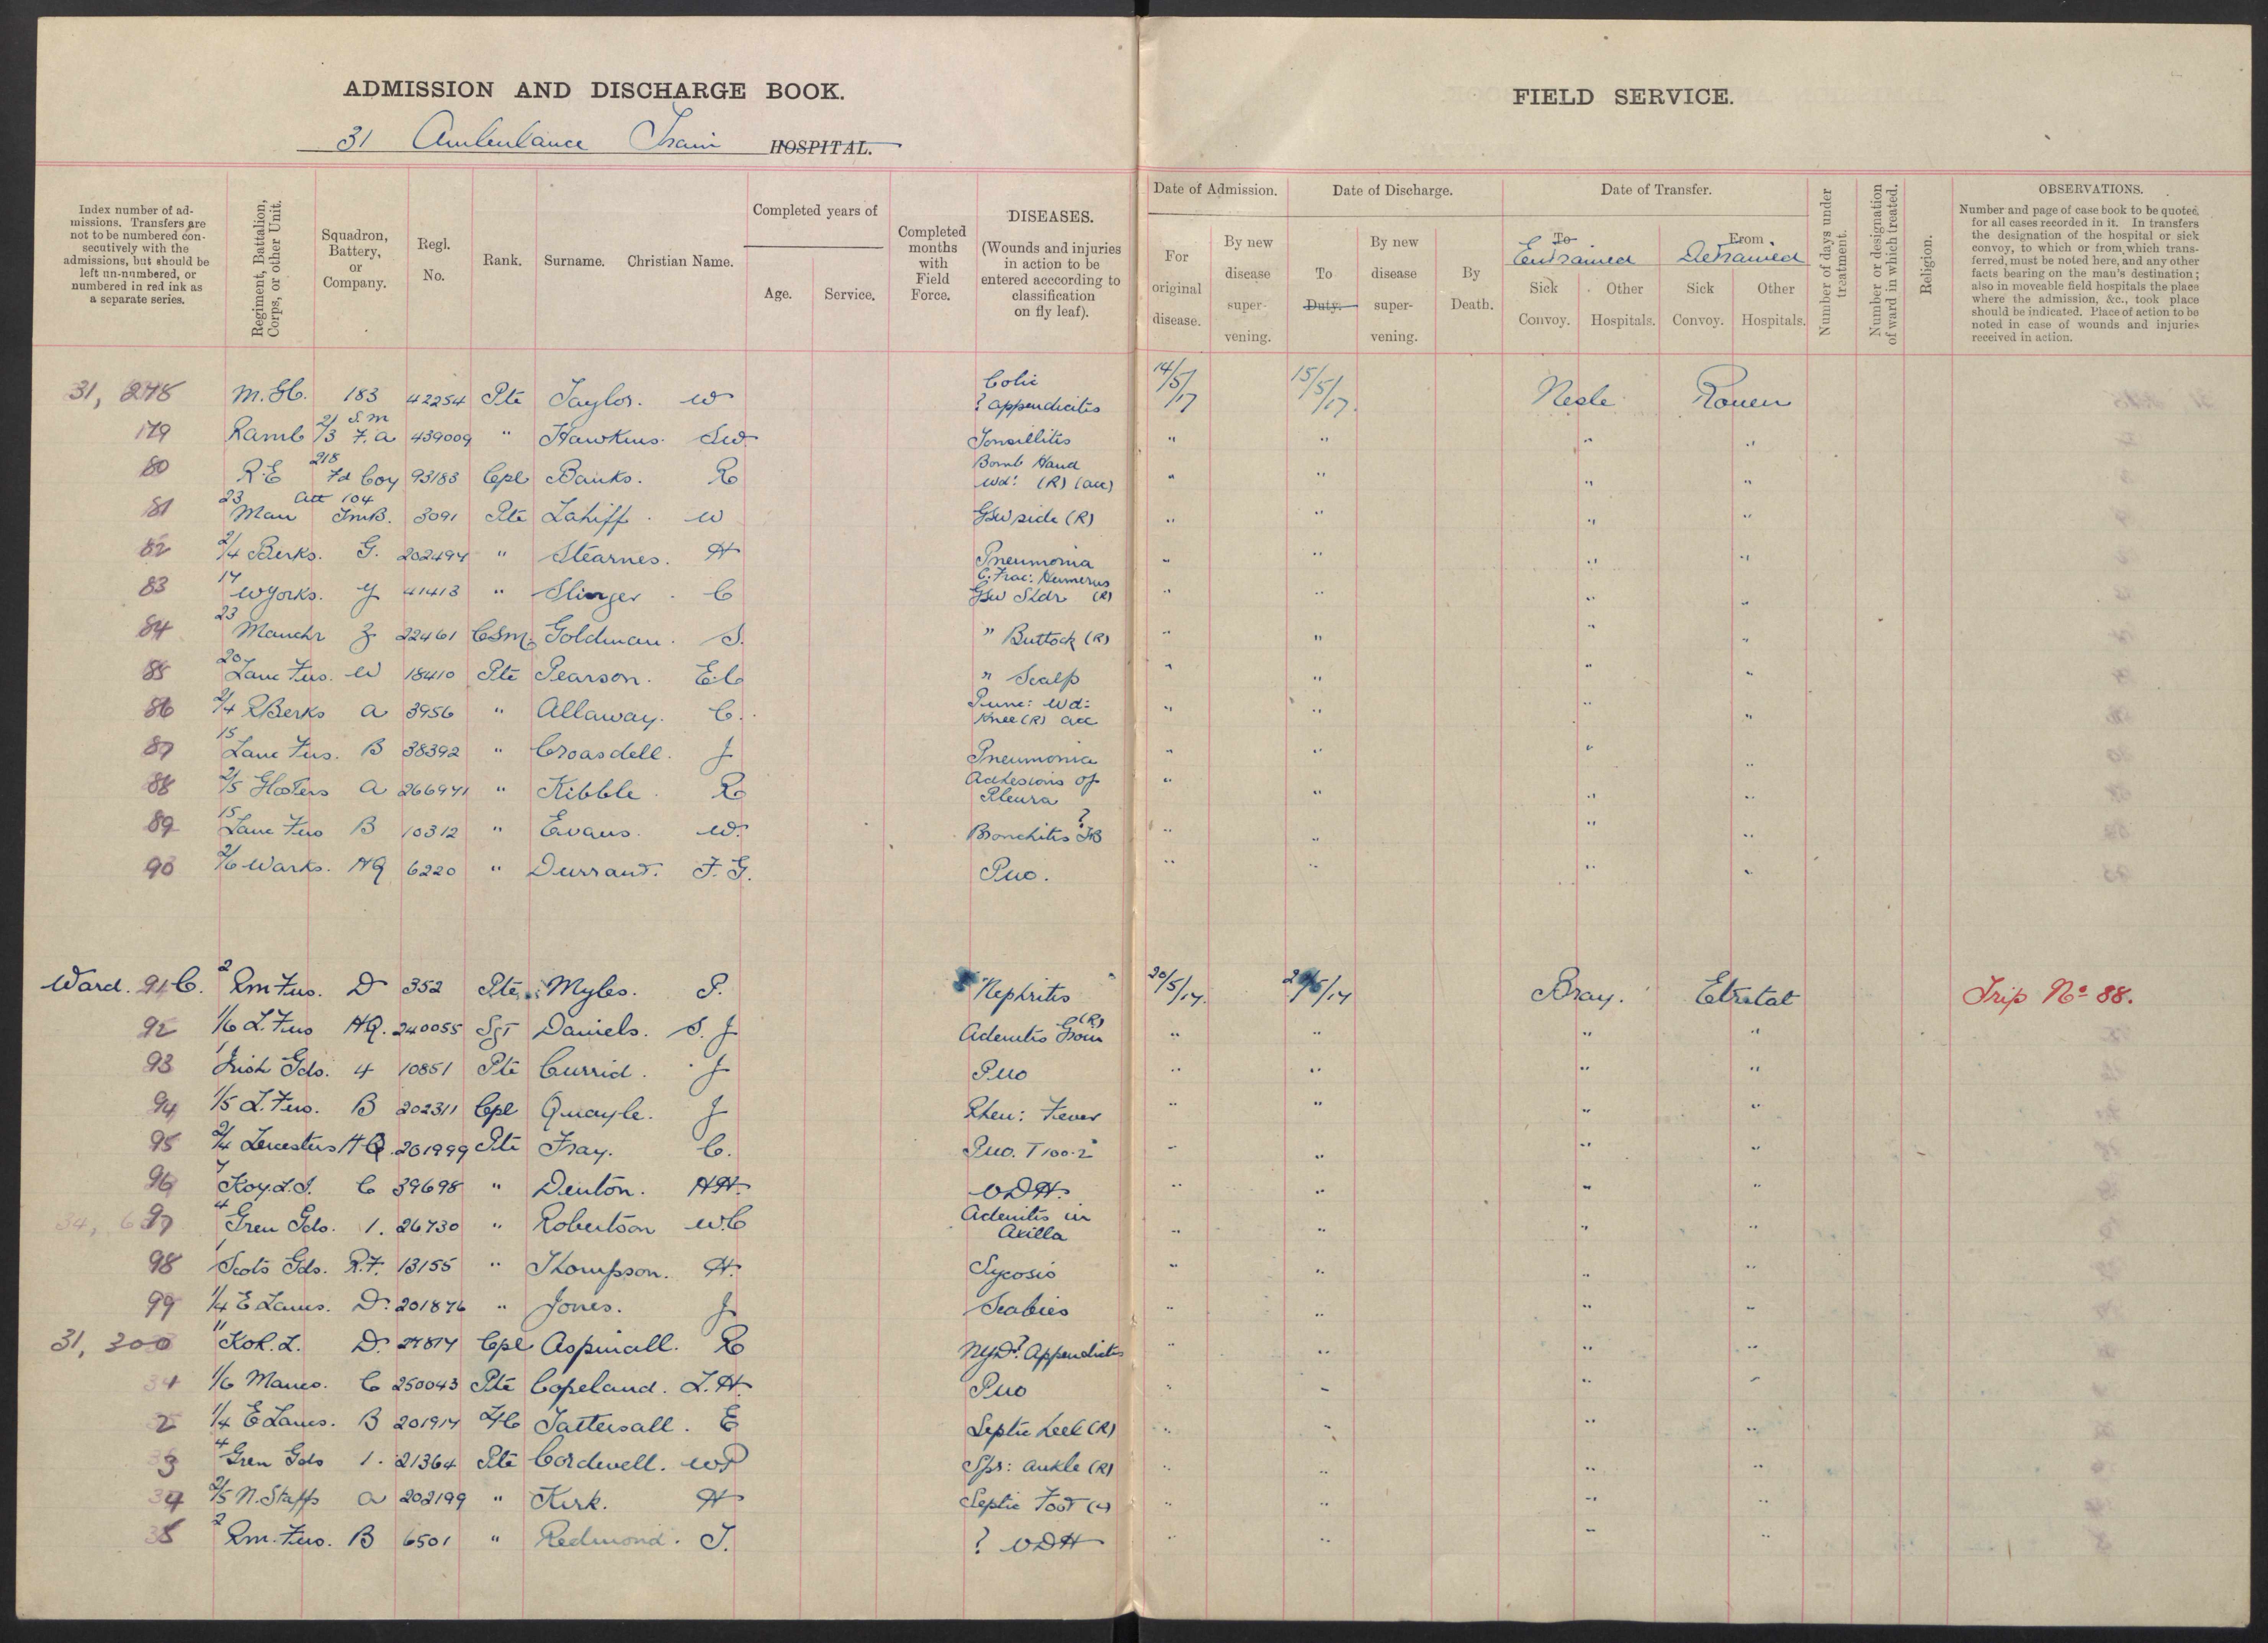 ADMISSION AND DISCHARGE BOOK.
31 Ambulance Train HOSPITAL.
Index number of ad-
missions. Transfers are
not to be numbered con-
secutively with the
admissions, but should be
left un-numbered, or
numbered in red ink as
a separate series.
Regiment, Battalion,
Corps, or other Unit.
Squadron,
Battery,
or
Company.
Regl.
No.
Rank.
Surname. Christian Name.
Completed years of
Age. Service.
Completed
months
with
Field
Force.
DISEASES.
(Wounds and injuries
in action to be
entered acccording to
classification
on fly leaf).
FIELD SERVICE.
Date of Admission.
For
original
disease.
By new
disease
super-
vening.
Date of Discharge.
To
Duty.
By new
disease
super-
vening.
By
Death.
Date of Transfer.
To
Entrained
Sick
Convoy.
Other
Hospitals.
From
Detrained
Sick
Convoy.
Other
Hospitals.
Number of days under
treatment.
Number or designation
of ward in which treated.
Religion.
OBSERVATIONS.
Number and page of case book to be quoted
for all cases recorded in it. In transfers
the designation of the hospital or sick
convoy, to which or from which trans-
ferred, must be noted here, and any other
facts bearing on the man's destination;
also in moveable field hospitals the place
where the admission, &c., took place
should be indicated. Place of action to be
noted in case of wounds and injuries
received in action.
31, 278 M.G.C. 183 42254 Pte Taylor. W Colic ? appendicitis 14/5/17 15/5/17. Nesle Rouen
179 Ramb 2/3 S.M F.A 439009 " Hawkins. S.W. Tonsillitis " " " "
80 R.E 218 Fd Coy 93183 Cpl Banks. R Bomb Hand Wd: (R) (acc) " " " "
81 23 Man att 104 TMB. 3091 Pte Lahiff. W GSW side (R) " " " "
82 2/4 Berks. G. 202494 " Stearnes. H Pneumonia " " " "
83 17 W Yorks. Y 41413 " Slinger. C C. Frac: Humerus GSW Sldr (R) " " " "
84 23 Manchr Z 22461 CSM Goldman. S. " Buttock (R) " " " "
85 20 Lanc Fus. W 18410 Pte Pearson. E.C " Scalp " " " "
86 2/4 R Berks A 3956 " Allaway. C. Punc: Wd: Knee (R) acc " " " "
87 15 Lanc Fus. B 38392 " Croasdell. J Pneumonia " " " "
88 2/5 Glosters A 266971 " Kibble. R Adhesions of Pleura " " " "
89 15 Lanc Fus B 10312 " Evans. W. Bronchitis ? TB " " " "
90 2/6 Warks. HQ 6220 " Durrant. F. G. Puo. " " " "
Ward. 91 C. 2 Rm Fus. D 352 Pte Myles. P. "Nephritis" 20/5/17. /5/17 Bray. Etretat Trip No 88.
92 1/6 L. Fus HQ. 240055 Sgt Daniels. S. J Adenitis Groin (R) " " " "
93 1 Irish Gds. 4 10851 Pte Currid. J Puo " " " "
94 1/5 L. Fus. B 202311 Cpl Quayle. J Rheu: Fever " " " "
95 2/4 Leicesters HQ. 201999 Pte Fray. C. Puo. T 100.2° " " " "
96 7 Koy.L.I. C 39698 " Denton. HH. VDH. " " " "
97 4 Gren Gds. 1. 26730 " Robertson W.C Adenitis in Axilla " " " "
98 1 Scots Gds. R.F. 13155 " Thompson. H. Sycosis " " " "
99 1/4 E Lancs. D. 201876 " Jones. J Scabies " " " "
31, 300 11 KoR.L. D. 27817 Cpl Aspinall. R NYD? Appendicitis " " " "
1/6 Mancs. C 250043 Pte Copeland. L.H. Puo " " " "
2 1/4 E Lancs. B 201917 L/C Tattersall. E Septic heel (R) " " " "
3 4 Gren Gds 1. 21364 Pte Cordwell. W P Spr: ankle (R) " " " "
4 2/5 N. Staffs A 202199 " Kirk. H Septic Foot (L) " " " "
5 2 Rm. Fus. B 6501 " Redmond. T. ? VDH " " " "